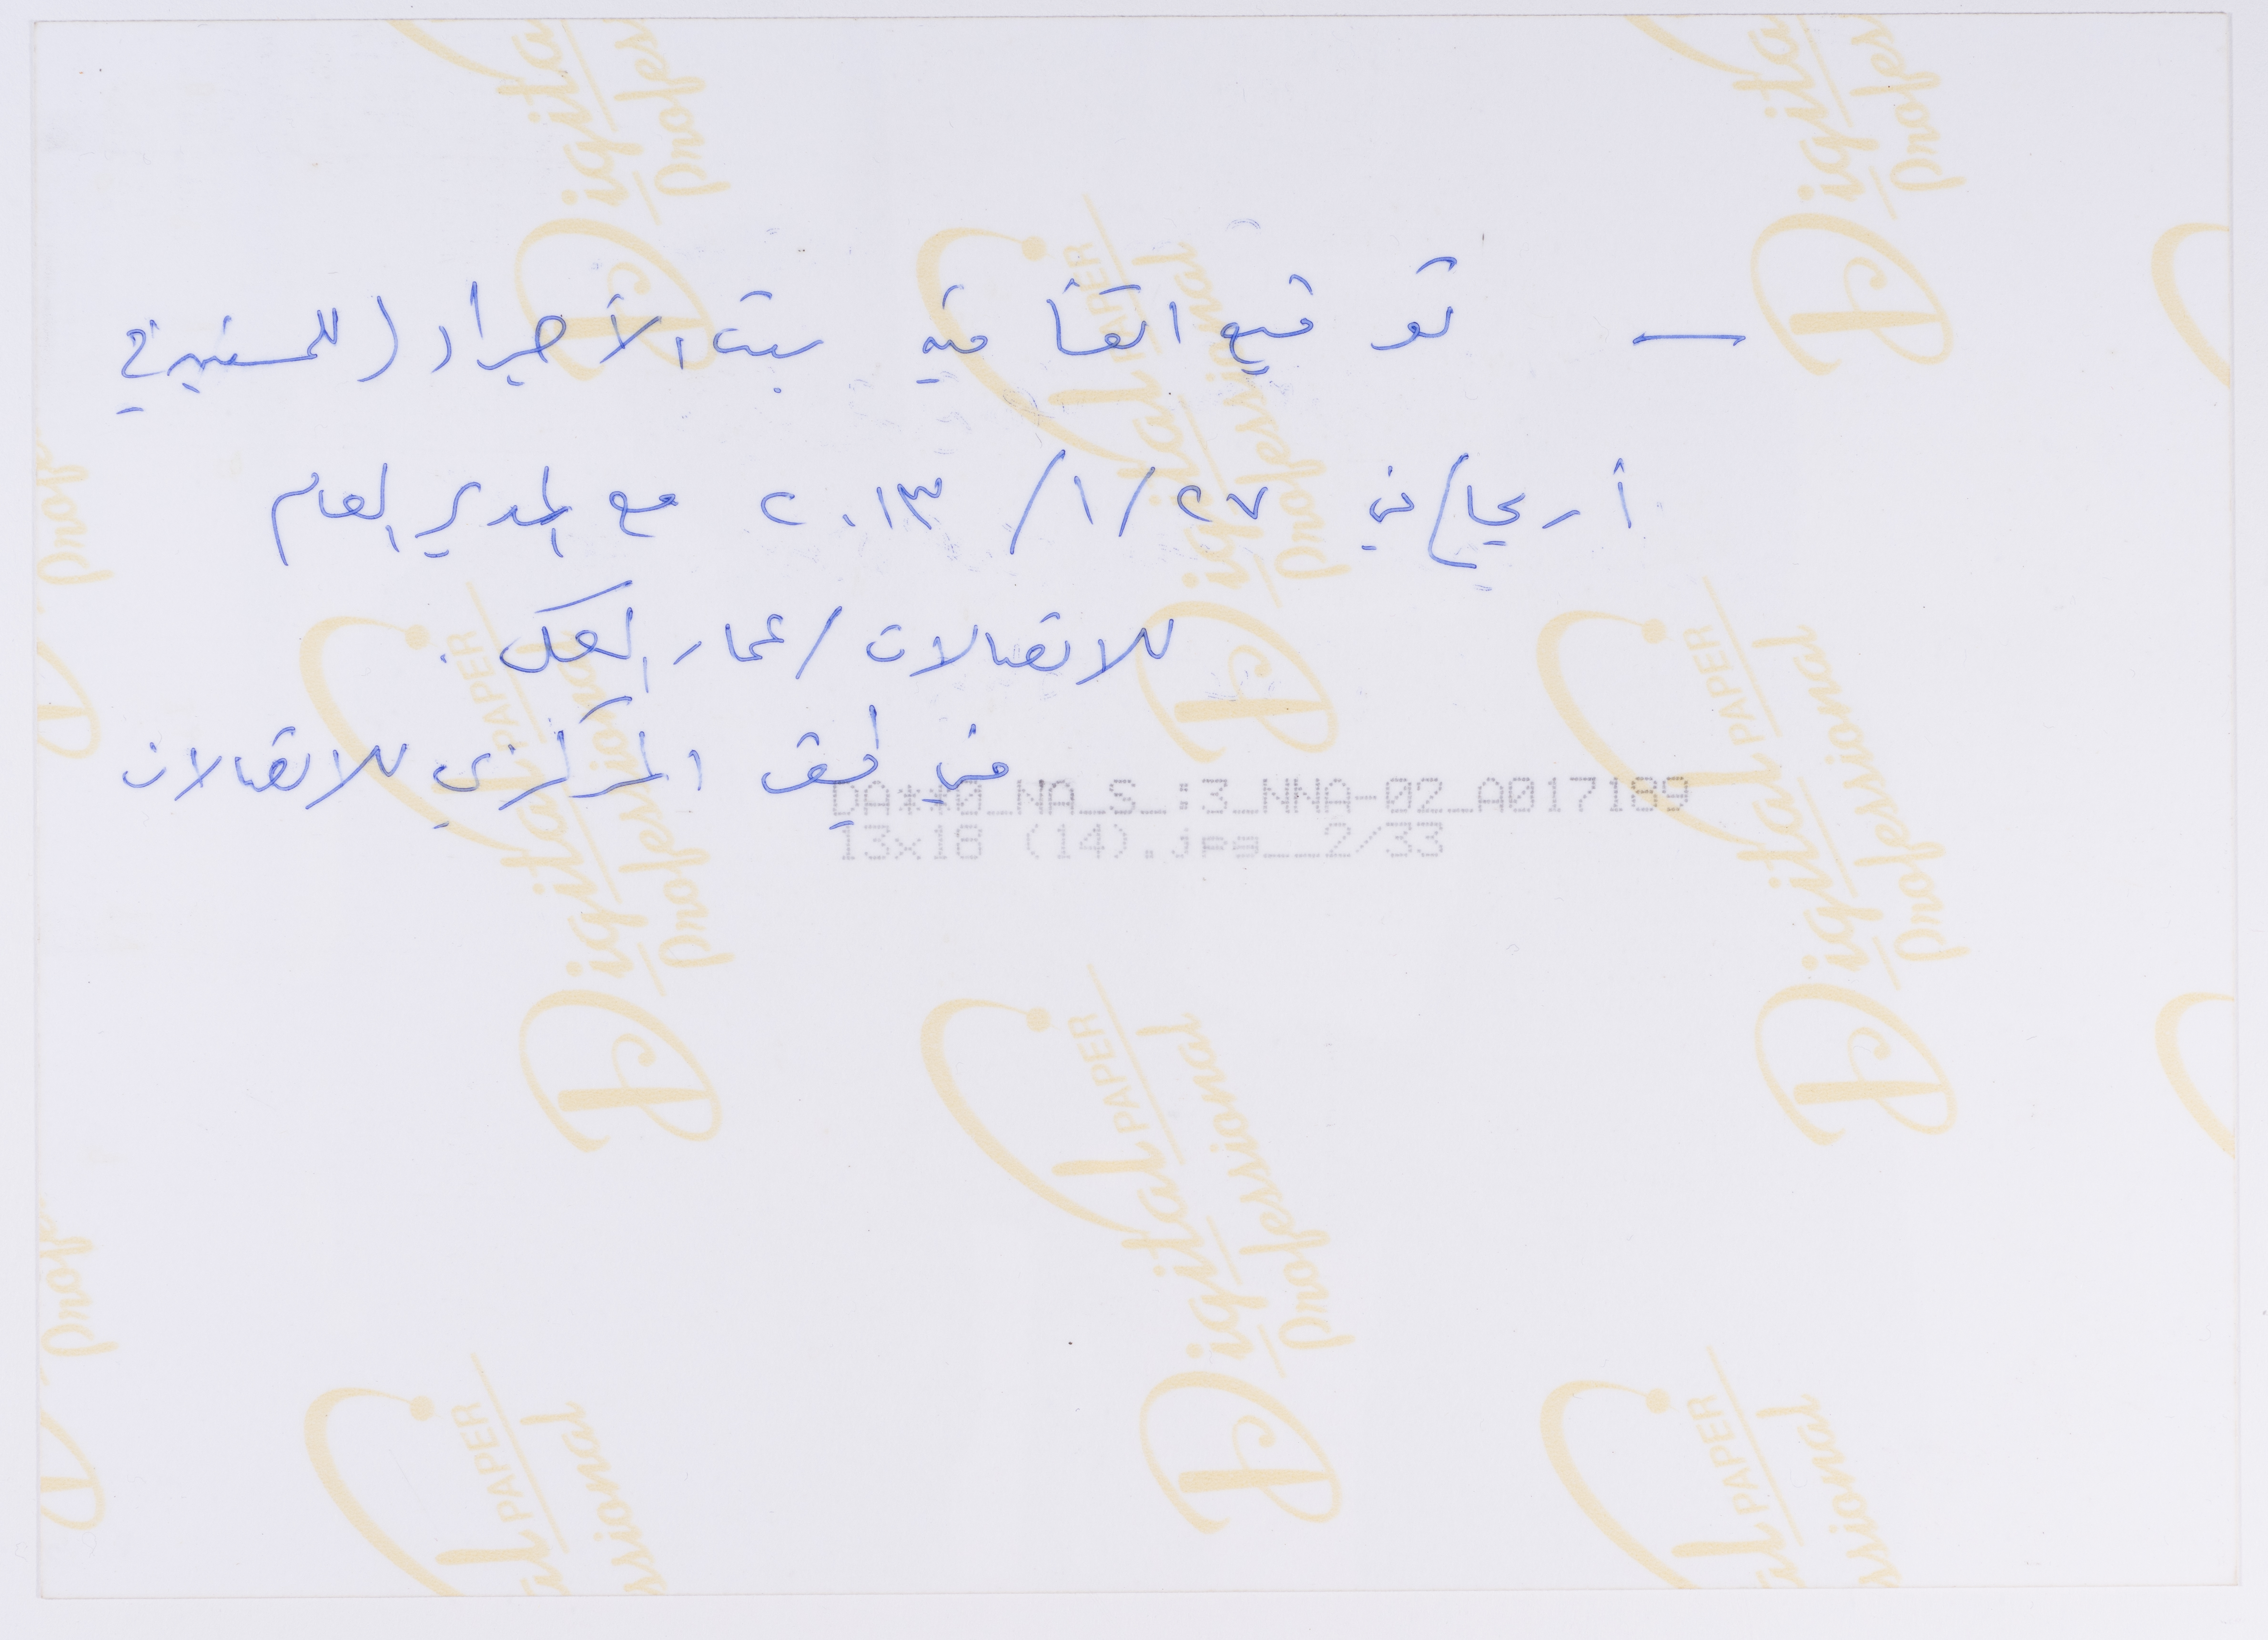 — توقيع اتفاقيه بيت الأجداد (للمسنين) في
أريحا/في ٢٧/١/٢٠١٣ مع المدير العام
للاتصالات/عمار العكر.
في المركزي للاتصالات
DA**0_NA_S_:3_NNA-02_A017189
13x18 (14).jpg__2/33
Digital PAPER
Professional